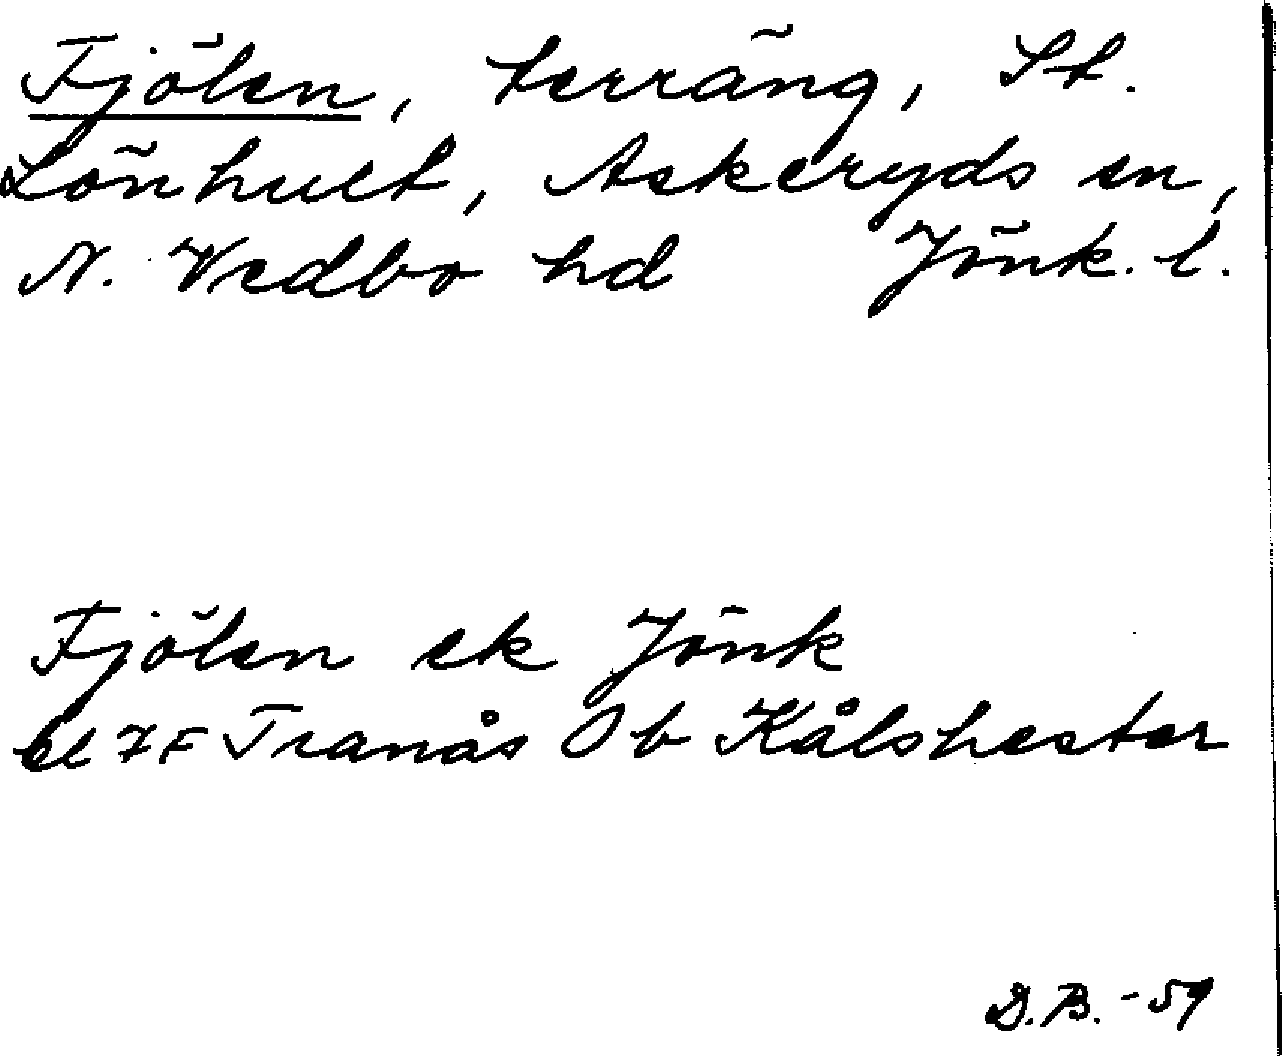 Fjölen, terräng, St.
Lönhult, Askeryds sn,
N. Vedbo hd Jönk. l.
Fjölen ek Jönk
bl 7F Tranås Ob Kålshester
D.B. -59